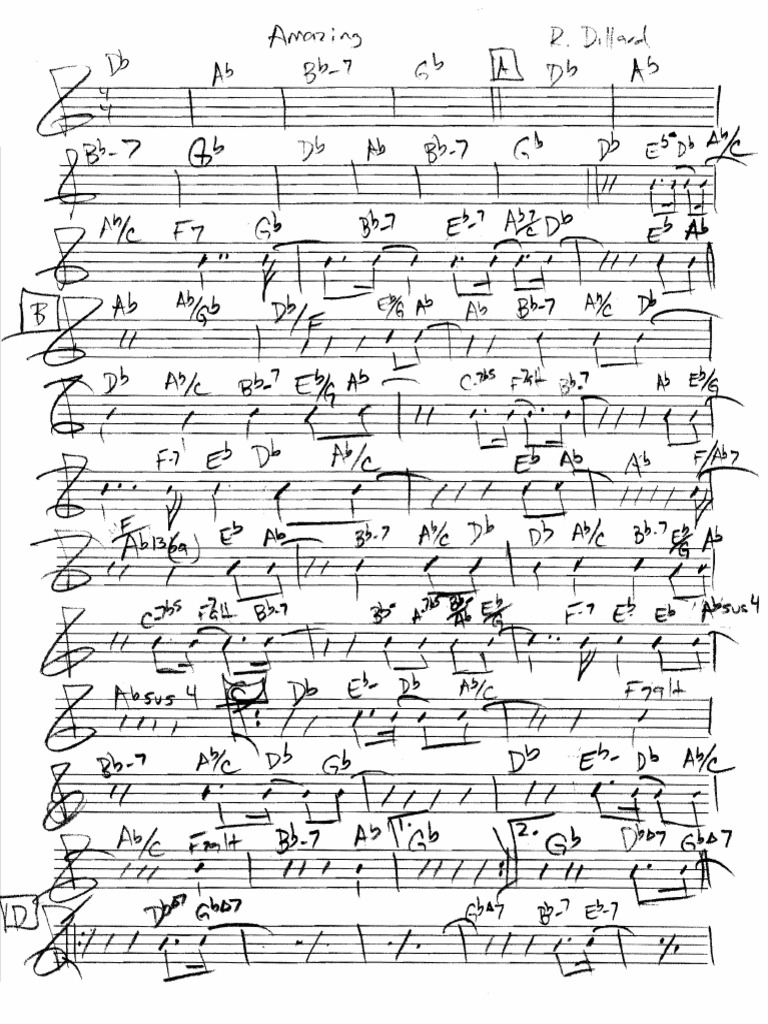 Amazing R. Dillard
Db Ab Bb-7 Gb A Db Ab
4/4
Bb-7 Gb Db Ab Bb-7 Gb Db Eb- Db Ab/C
Ab/C F7 Gb Bb-7 Eb-7 Ab7/C Db Eb Ab
B Ab Ab/Gb Db/F Eb/G Ab Ab Bb-7 Ab/C Db
Db Ab/C Bb-7 Eb/G Ab C-7b5 F7alt Bb-7 Ab Eb/G
F-7 Eb Db Ab/C Eb Ab Ab F/Ab7
F/Ab13(b9) Eb Ab Bb-7 Ab/C Db Db Ab/C Bb-7 Eb/G Ab
C-7b5 F7alt Bb-7 Bb- A-7b5 Bb-/Ab Eb/G F-7 Eb Eb Absus4
Absus4 C Db Eb- Db Ab/C F7alt
Bb-7 Ab/C Db Gb Db Eb- Db Ab/C
Ab/C F7alt Bb-7 Ab 1. Gb 2. Gb DbΔ7 GbΔ7
D DbΔ7 GbΔ7 GbΔ7 Bb-7 Eb-7